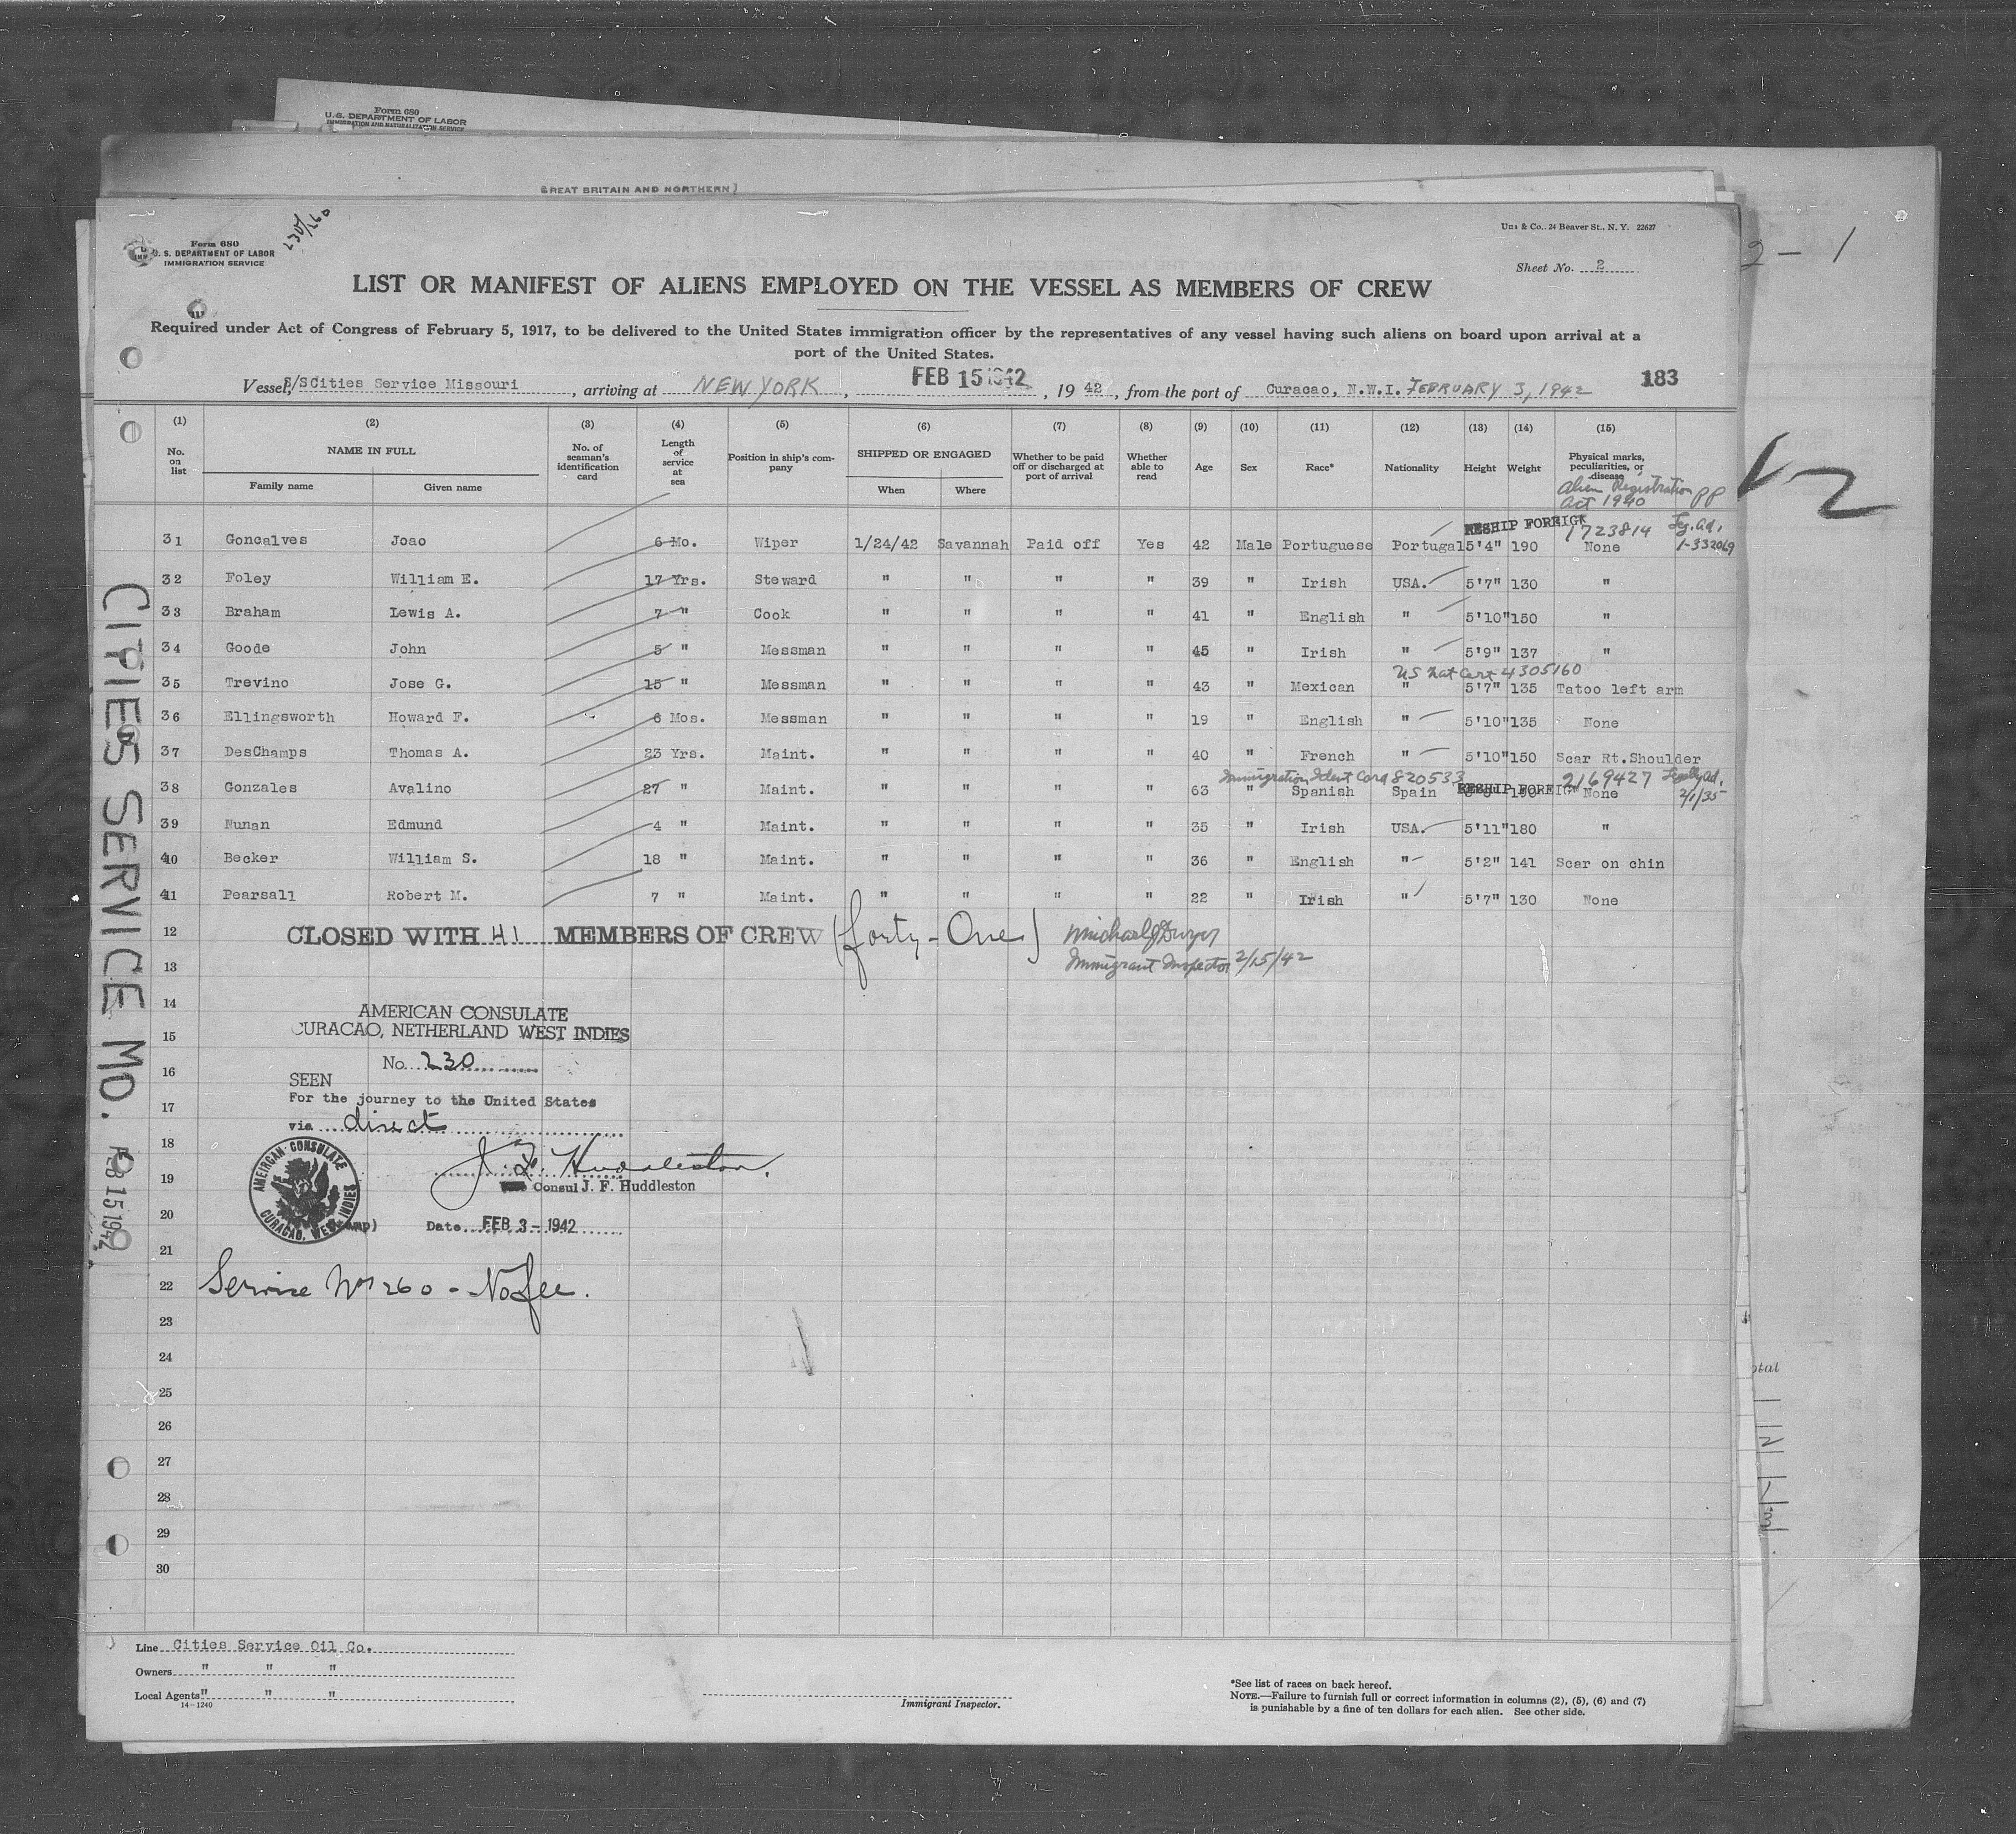 Form 680
U.S. DEPARTMENT OF LABOR
IMMIGRATION AND NATURALIZATION SERVICE
GREAT BRITAIN AND NORTHERN
230/260
Form 680
U. S. DEPARTMENT OF LABOR
IMMIGRATION SERVICE
& Co., 24 Beaver St., N. Y. 22627
Sheet No. 2
2 - 1
LIST OR MANIFEST OF ALIENS EMPLOYED ON THE VESSEL AS MEMBERS OF CREW
Required under Act of Congress of February 5, 1917, to be delivered to the United States immigration officer by the representatives of any vessel having such aliens on board upon arrival at a
port of the United States.
Vessel, S/S Cities Service Missouri, arriving at NEW YORK, FEB 15 1942, 19 42, from the port of Curacao, N.W.I. FEBRUARY 3, 1942 183
(1) (2) (3) (4) (5) (6) (7) (8) (9) (10) (11) (12) (13) (14) (15)
No. on list NAME IN FULL Family name Given name No. of seaman's identification card Length of service at sea Position in ship's company SHIPPED OR ENGAGED When Where Whether to be paid off or discharged at port of arrival Whether able to read Age Sex Race* Nationality Height Weight Physical marks, peculiarities, or disease
Alien Registration Act 1940 PP
RESHIP FOREIGN 1723814 Leg. ad.
31 Goncalves Joao 6 Mo. Wiper 1/24/42 Savannah Paid off Yes 42 Male Portuguese Portugal 5'4" 190 None 1-332069
32 Foley William E. 17 Yrs. Steward " " " " 39 " Irish USA. 5'7" 130 "
33 Braham Lewis A. 7 " Cook " " " " 41 " English " 5'10" 150 "
34 Goode John 5 " Messman " " " " 45 " Irish " 5'9" 137 "
US Nat Cert 4305160
35 Trevino Jose G. 15 " Messman " " " " 43 " Mexican " 5'7" 135 Tatoo left arm
36 Ellingsworth Howard F. 6 Mos. Messman " " " " 19 " English " 5'10" 135 None
37 DesChamps Thomas A. 23 Yrs. Maint. " " " " 40 " French " 5'10" 150 Scar Rt. Shoulder
Immigration Ident Card 820533 2169427 Legally ad.
38 Gonzales Avalino 27 " Maint. " " " " 63 " Spanish Spain RESHIP FOREIGN None 2/1/35
39 Nunan Edmund 4 " Maint. " " " " 35 " Irish USA. 5'11" 180 "
40 Becker William S. 18 " Maint. " " " " 36 " English " 5'2" 141 Scar on chin
41 Pearsall Robert M. 7 " Maint. " " " " 22 " Irish " 5'7" 130 None
12 CLOSED WITH 41 MEMBERS OF CREW (forty-One) Michael J Dwyer
13 Immigrant Inspector 2/15/42
14 AMERICAN CONSULATE
15 CURACAO, NETHERLAND WEST INDIES
16 No. 230
SEEN
17 For the journey to the United States
via direct
18 J. F. Huddleston
19 Consul J. F. Huddleston
AMERICAN CONSULATE CURACAO, WEST INDIES
20 Date FEB 3 - 1942
21
22 Service No 260 - No fee.
23
24
25
26
27
28
29
30
CITIES SERVICE MO. FEB 15 1942
Line Cities Service Oil Co.
Owners " " "
Local Agents " " "
14-1240
Immigrant Inspector.
*See list of races on back hereof.
NOTE.—Failure to furnish full or correct information in columns (2), (5), (6) and (7)
is punishable by a fine of ten dollars for each alien. See other side.